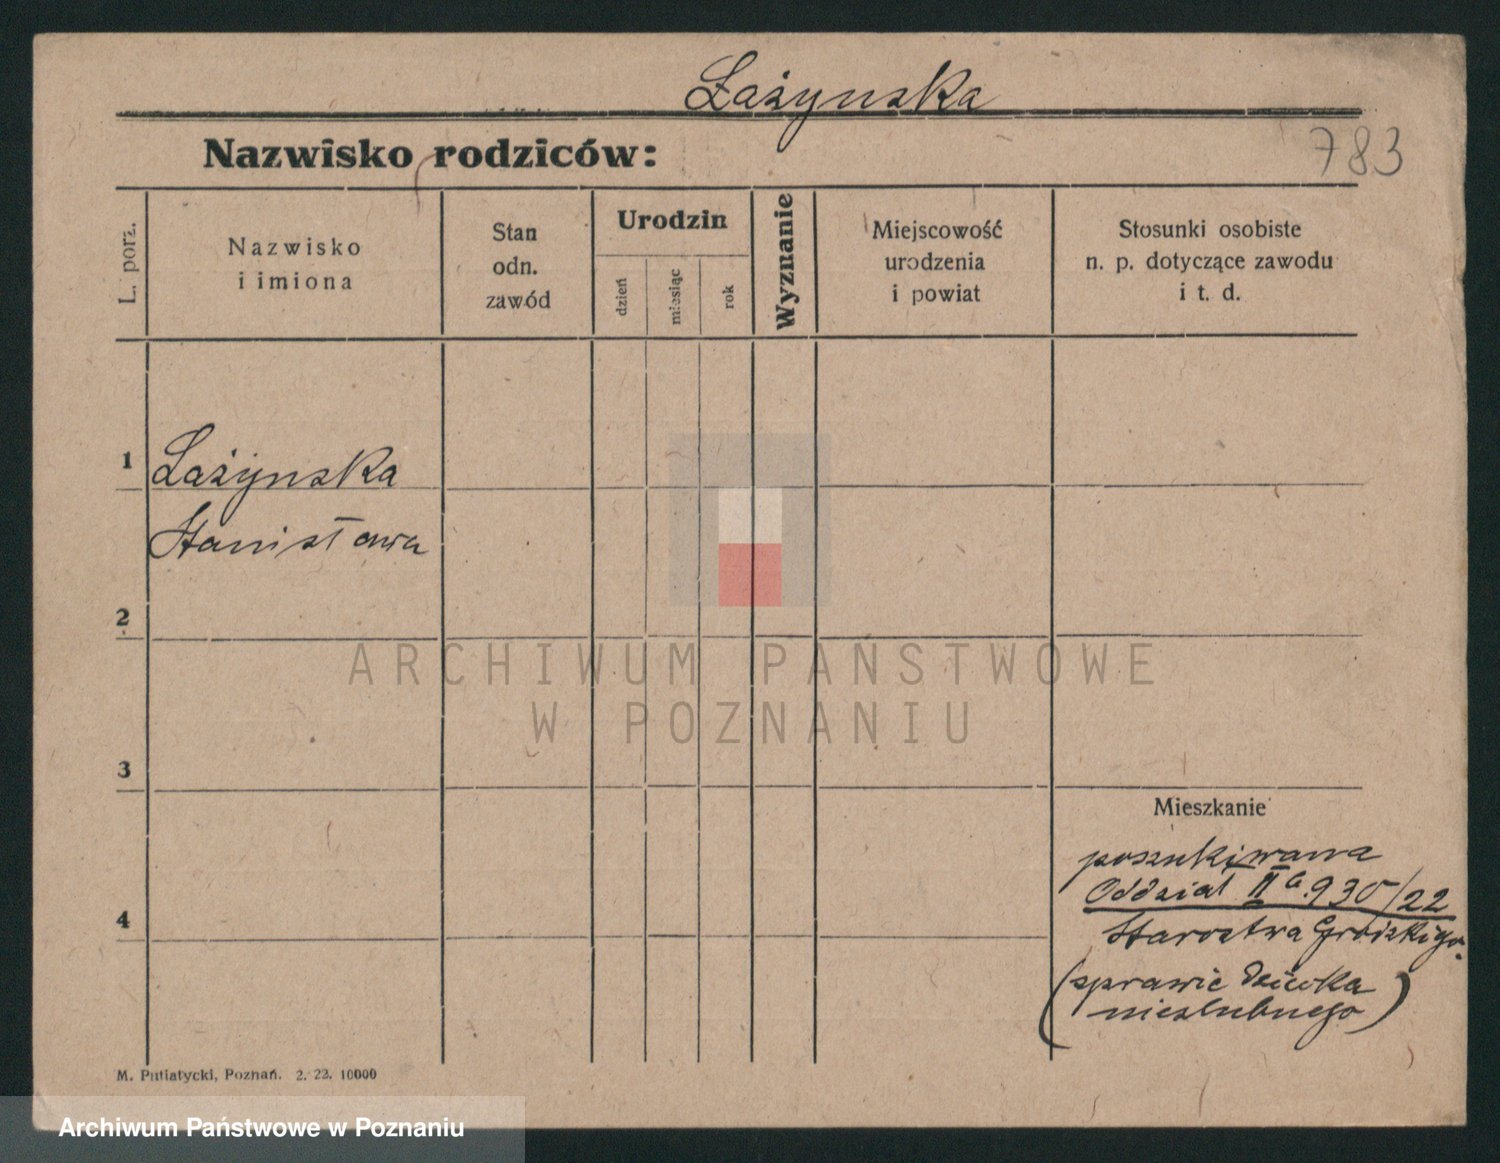 Łażynska
783
Nazwisko rodziców:
L. porz.
Nazwisko
i imiona
Stan
odn.
zawód
Urodzin
dzień
miesiąc
rok
Wyznanie
Miejscowość
urodzenia
i powiat
Stosunki osobiste
n. p. dotyczące zawodu
i t. d.
1
Łażynska
Stanisława
2
3
Mieszkanie
poszukiwana
Oddział II 930/22
Starostwa Grodzkigo.
(sprawie dziecka
nieslubnego)
4
ARCHIWUM PAŃSTWOWE
W POZNANIU
M. Putiatycki, Poznań. 2. 22. 10000
Archiwum Państwowe w Poznaniu